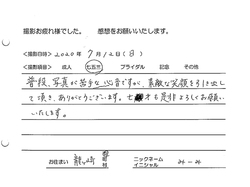 撮影お疲れ様でした。 感想をお願いいたします。
<撮影日時> 2020年 7月12日(日)
<撮影項目> 成人 七五三 ブライダル 記念 その他
普段、写真が苦手な心音ですが、素敵な笑顔を引き出し
て頂き、ありがとうございます。七才も是非よろしくお願い
いたします。
お住まい 龍ヶ崎 ニックネーム
イニシャル